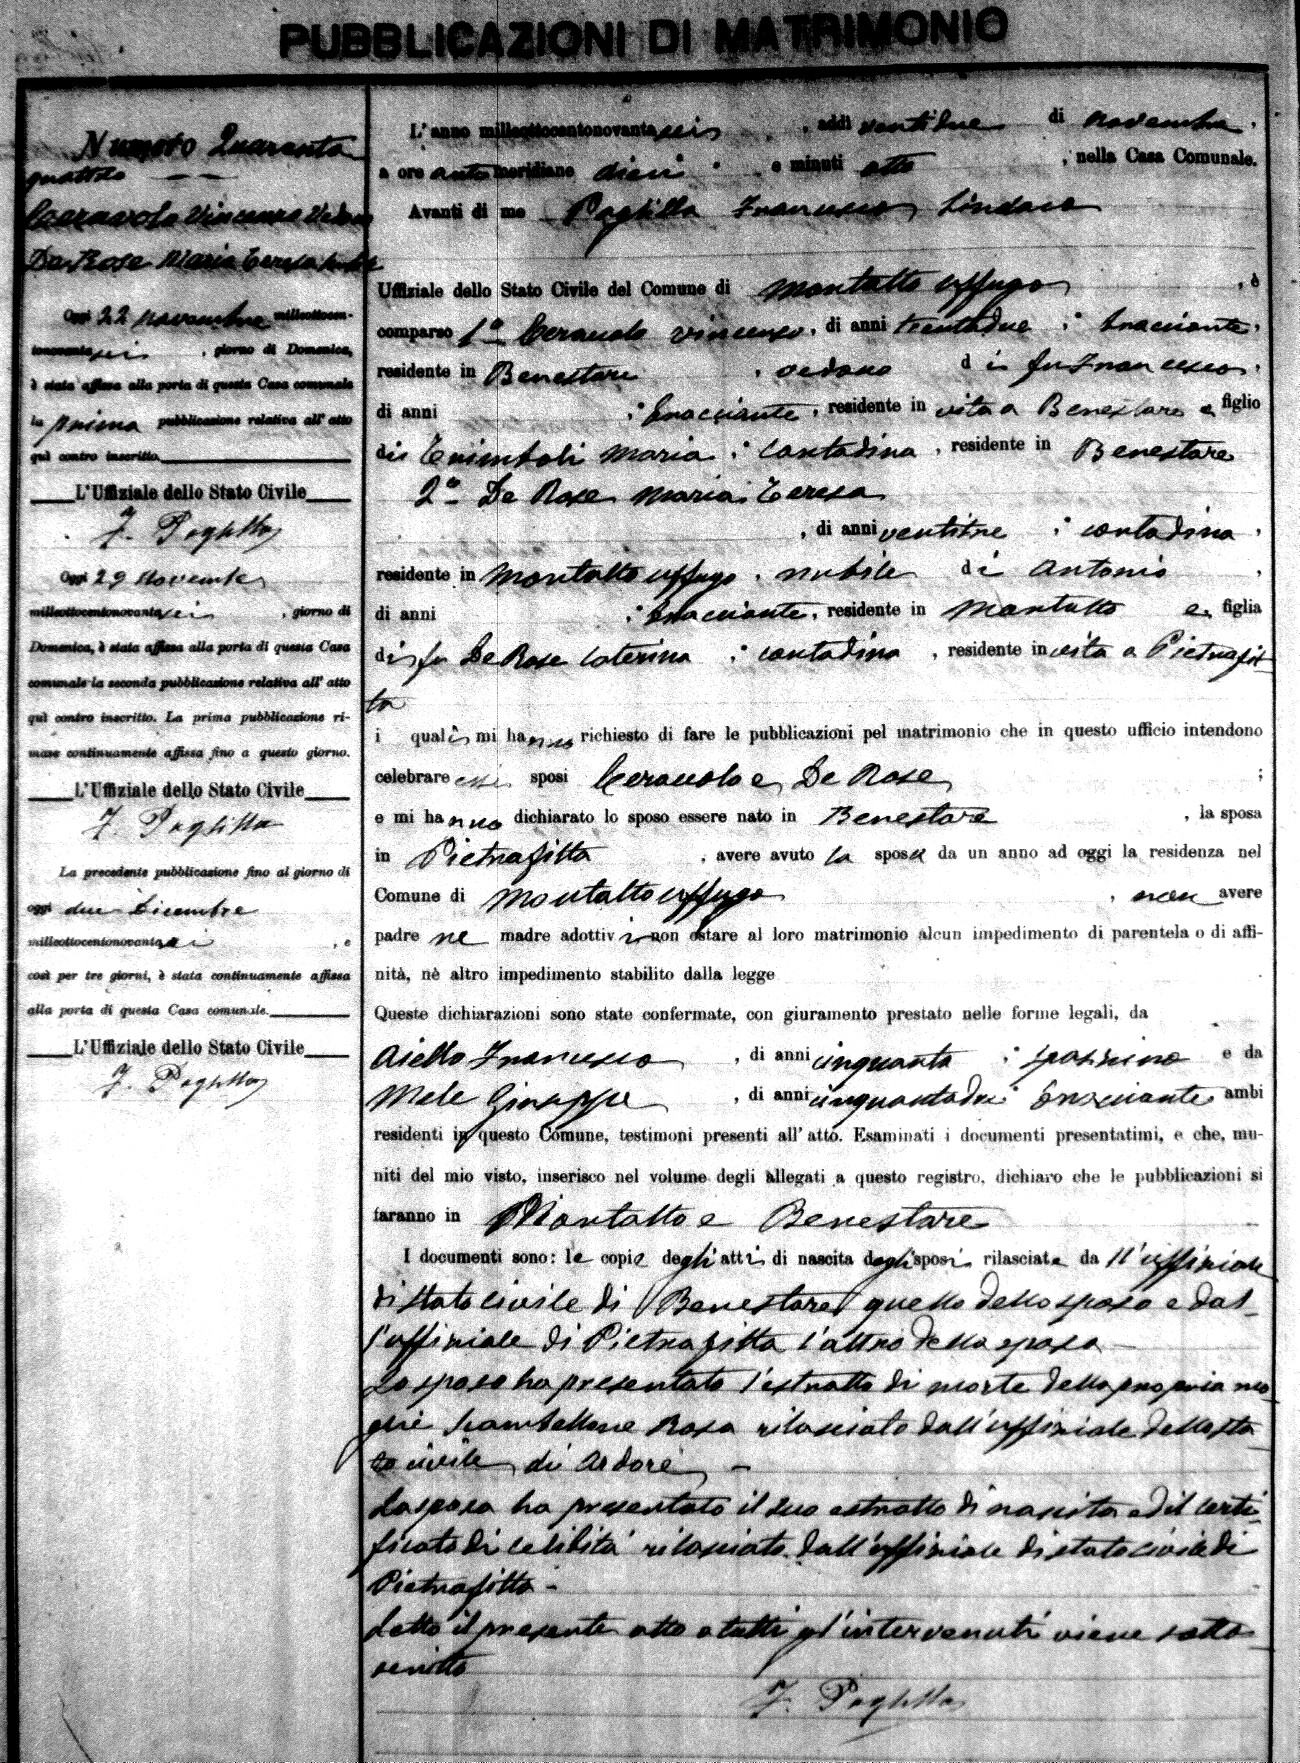 PUBBLICAZIONI DI MATRIMONIO
Numero Quaranta
quattro
Ceravolo Vincenzo Vedovo
De Rose Maria Teresa nubile
Oggi 22 novembre milleottocen-
tonovantasei, giorno di Domenica,
è stata affissa alla porta di questa Casa comunale
la prima pubblicazione relativa all' atto
quì contro inscritto.
L'Uffiziale dello Stato Civile
F. Paglilla
Oggi 29 Novembre
milleottocentonovantasei, giorno di
Domenica, è stata affissa alla porta di questa Casa
comunale la seconda pubblicazione relativa all' atto
quì contro inscritto. La prima pubblicazione ri-
mase continuamente affissa fino a questo giorno.
L'Uffiziale dello Stato Civile
F. Paglilla
La precedente pubblicazione fino al giorno di
oggi due Dicembre
milleottocentonovantasei, e
così per tre giorni, è stata continuamente affissa
alla porta di questa Casa comunale.
L'Uffiziale dello Stato Civile
F. Paglilla
L'anno milleottocentonovantasei, addì ventidue di novembre,
a ore antemeridiane dieci e minuti otto, nella Casa Comunale.
Avanti di me Paglilla Francesco Sindaco
Uffiziale dello Stato Civile del Comune di Montalto Uffugo, è
comparso 1º Ceravolo Vincenzo, di anni trentadue, bracciante,
residente in Benestare, vedovo di fu Francesco,
di anni ; bracciante, residente in vita a Benestare e figlio
di Maria, contadina, residente in Benestare
2º De Rose Maria Teresa
, di anni ventitre, contadina,
residente in Montalto Uffugo, nubile di Antonio,
di anni ; bracciante, residente in Montalto e figlia
di fu De Rose Caterina, contadina, residente in vita a Pietrafit-
ta
i quali mi hanno richiesto di fare le pubblicazioni pel matrimonio che in questo ufficio intendono
celebrare essi sposi Ceravolo e De Rose ;
e mi hanno dichiarato lo sposo essere nato in Benestare, la sposa
in Pietrafitta, avere avuto la sposa da un anno ad oggi la residenza nel
Comune di Montalto Uffugo, non avere
padre ne madre adottivi non ostare al loro matrimonio alcun impedimento di parentela o di affi-
nità, nè altro impedimento stabilito dalla legge
Queste dichiarazioni sono state confermate, con giuramento prestato nelle forme legali, da
Aiello Francesco, di anni cinquanta, spazzino e da
Mele Giuseppe, di anni cinquantadue bracciante ambi
residenti in questo Comune, testimoni presenti all' atto. Esaminati i documenti presentatimi, e che, mu-
niti del mio visto, inserisco nel volume degli allegati a questo registro, dichiaro che le pubblicazioni si
faranno in Montalto e Benestare
I documenti sono: le copie degli atti di nascita degli sposi rilasciate da ll'uffiziale
di stato civile di Benestare quello dello sposo e dal-
l'uffiziale di Pietrafitta l'altro della sposa
Lo sposo ha presentato l'estratto di morte della propria mo
glie Rosa rilasciato dall'uffiziale dello sta
to civile di Ardore
La sposa ha presentato il suo estratto di nascita ed il certi
ficato di celibità rilasciato dall'uffiziale di stato civile di
Pietrafitta -
Letto il presente atto a tutti gl'intervenuti viene sotto
scritto
F. Paglilla